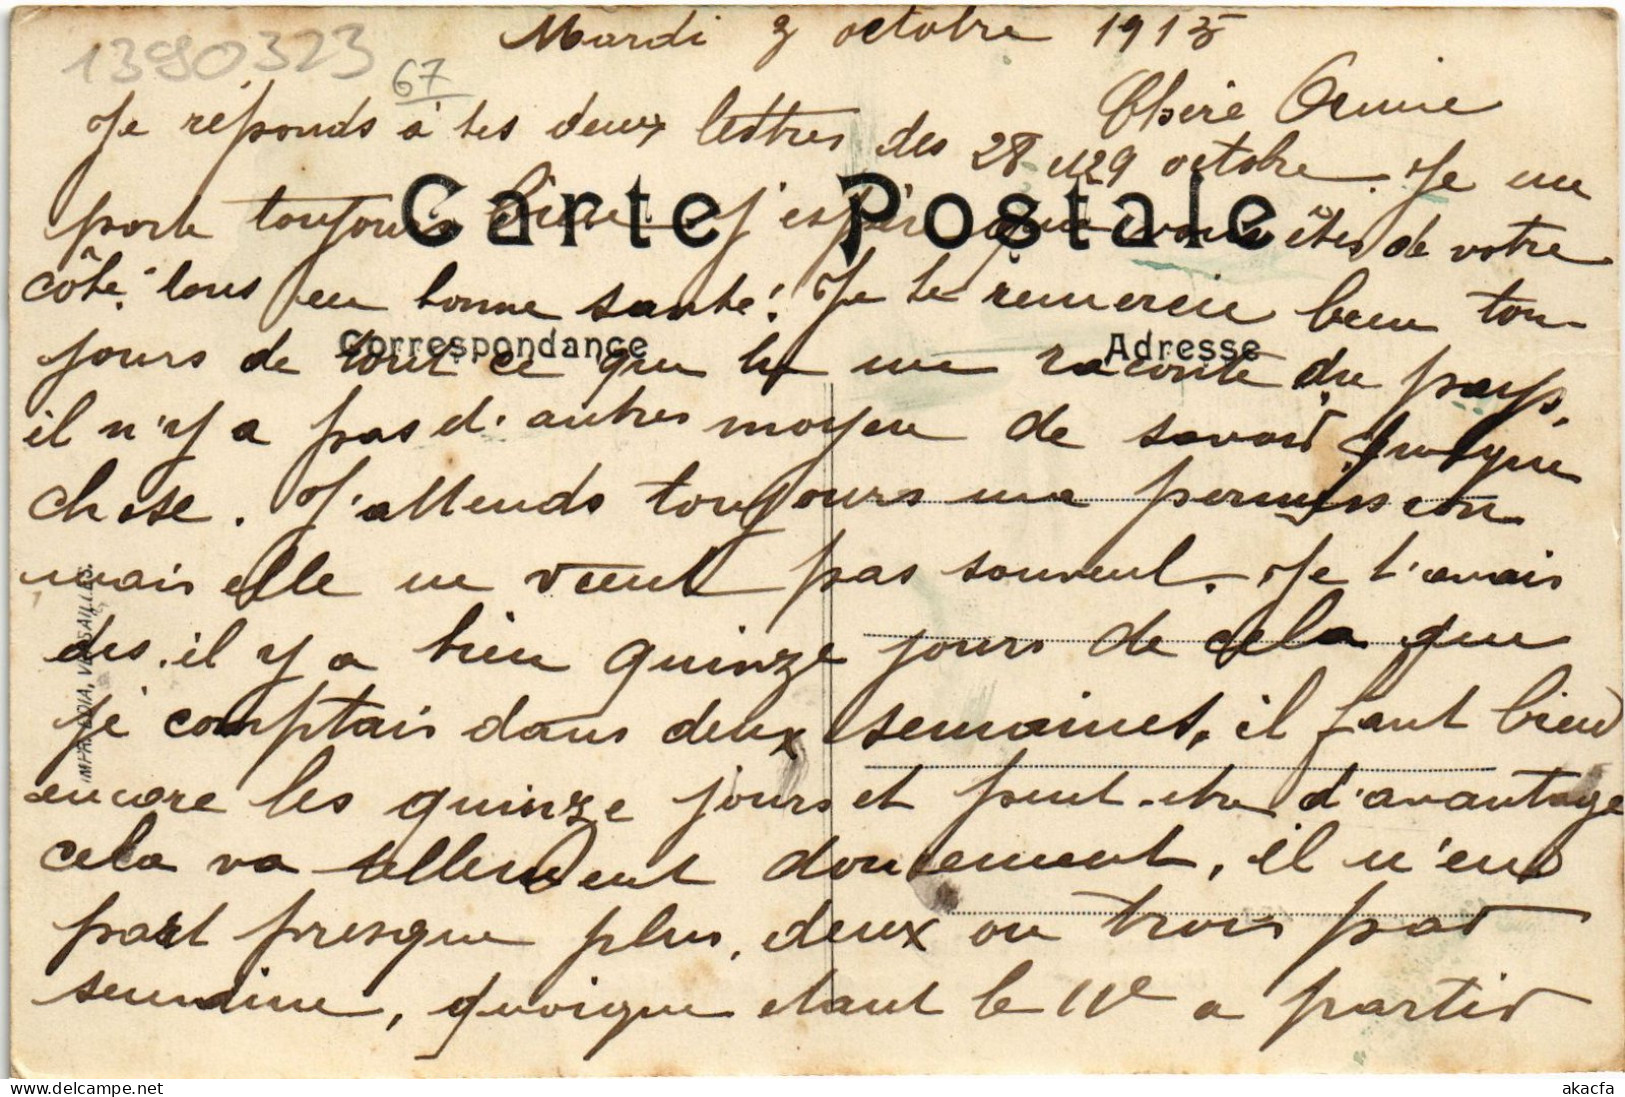 1390323
67
Mardi 3 octobre 1915
Chère Amie
Je réponds à tes deux lettres des 28 et 29 octobre. Je me
CARTE POSTALE
porte toujours bien j'espère que vous êtes de votre
côté tous en bonne santé! Je te remercie bien tou-
Correspondance
Adresse
jours de tout ce que tu me raconte du pays,
il n'y a pas d'autres moyen de savoir quelque
chose. J'attends toujours ma permission
mais elle ne vient pas souvent. Je t'avais
dis, il y a bien quinze jours de cela que
je comptais dans deux semaines, il faut bien
encore les quinze jours et peut-etre d'avantage
cela va tellement doucement, il n'en
part presque plus, deux ou trois par
semaine, quoique etant le 11e a partir
IMP. , VERSAILLES.
akacfa